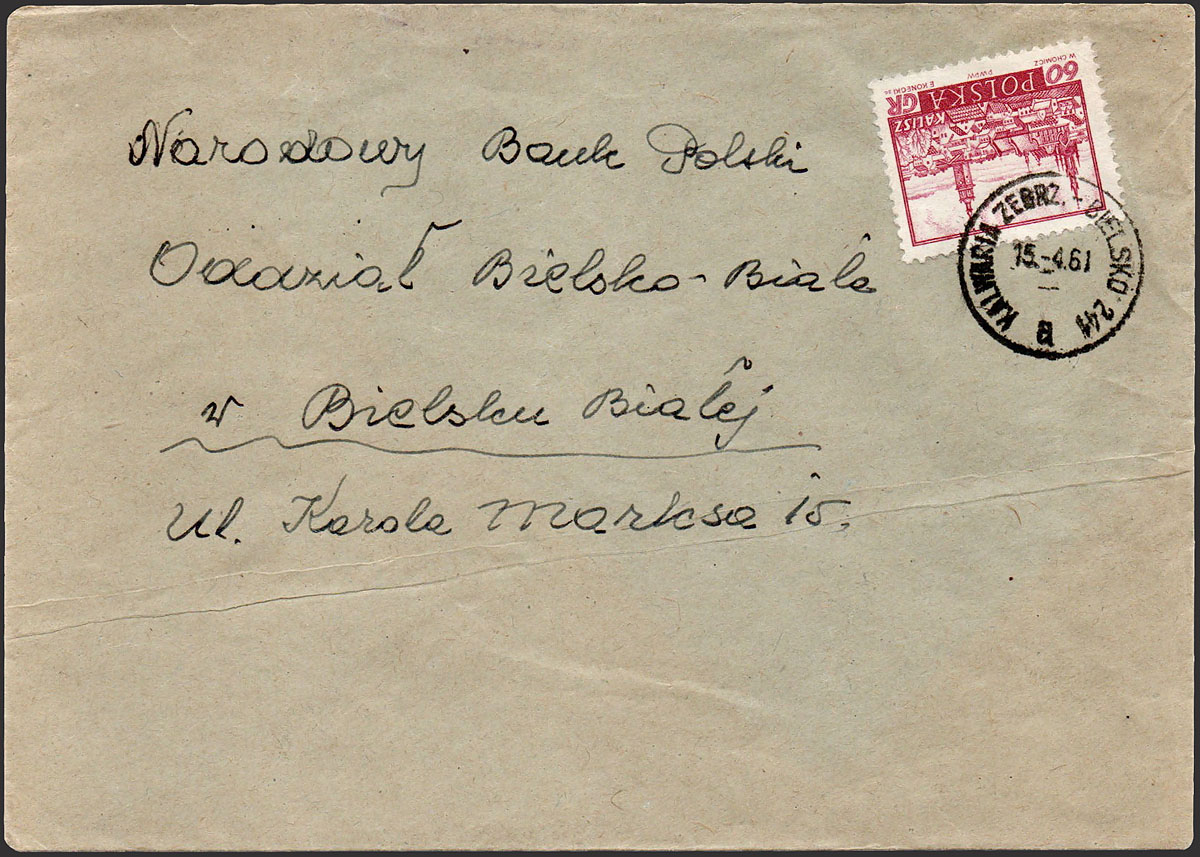 Narodowy Bank Polski
Oddział Bielsko-Biała
w Bielsku Białej
Ul. Karola Marksa 15.
60 POLSKA GR
KALISZ
W CHOMICZ PWPW E KONECKI sc
KALWARIA ZEBRZ. - BIELSKO 241
15.-4.61
a